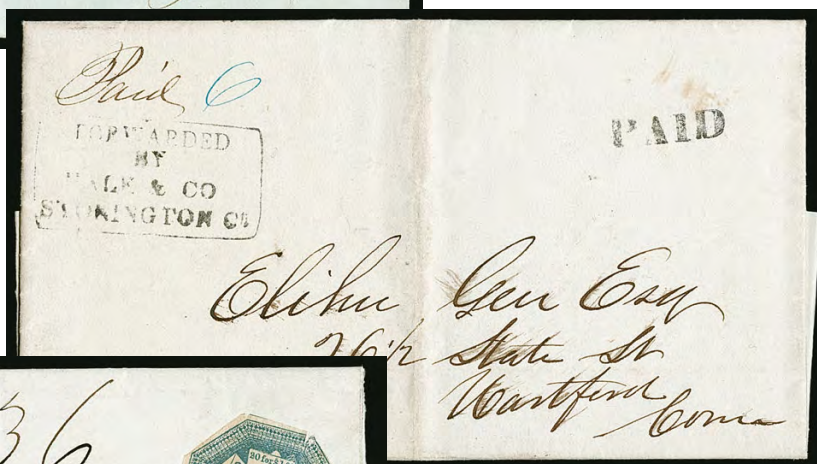 Paid 6
FORWARDED
BY
HALE & CO
STONINGTON Ct
PAID
Elihu Geer Esq
26½ State St
Hartford
Conn
36
20 for $1